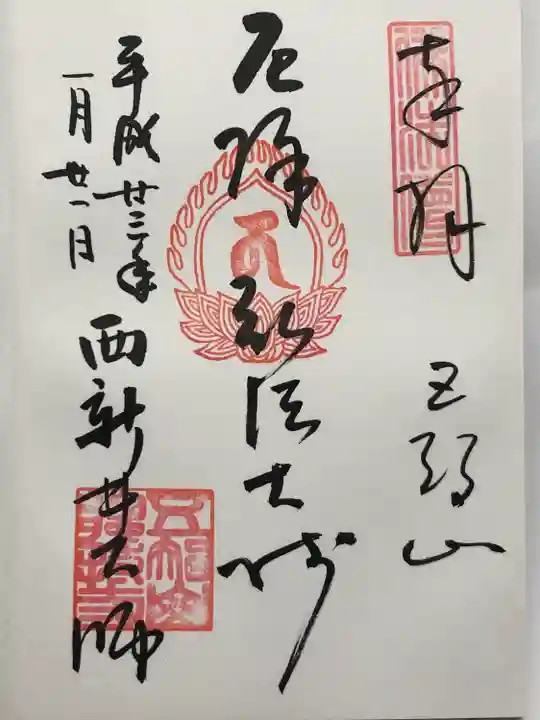 奉拝
五智山
厄除弘法大師
平成廿三年
一月廿一日
西新井大師